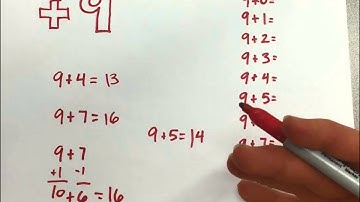 +9
9+4=13
9+7=16
9+7
+1 -1
10+6=16
9+5=14
9+0=
9+1=
9+2=
9+3=
9+4=
9+5=
9+7=